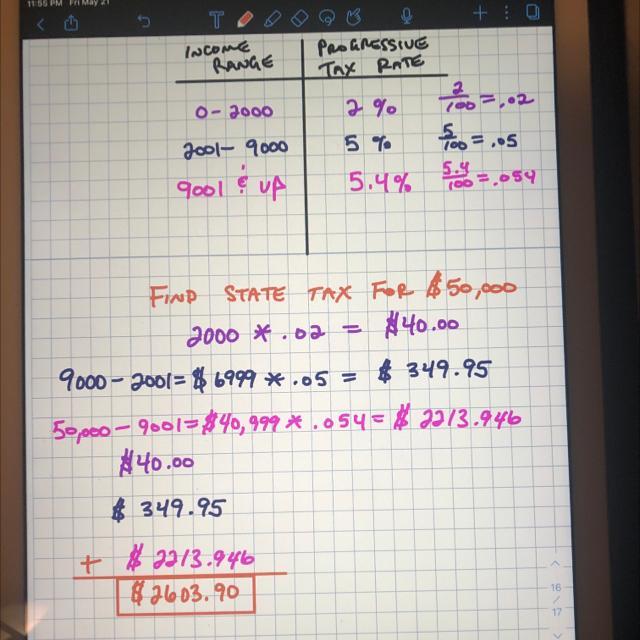 11:55 PM Fri May 21
INCOME RANGE PROGRESSIVE TAX RATE
0-2000 2% 2/100 = .02
2001-9000 5% 5/100 = .05
9001 & UP 5.4% 5.4/100 = .054
FIND STATE TAX FOR $50,000
2000 * .02 = $40.00
9000-2001= $6999 * .05 = $ 349.95
50,000-9001=$40,999 * .054= $ 2213.946
$40.00
$ 349.95
+ $ 2213.946
$2603.90
16
/
17